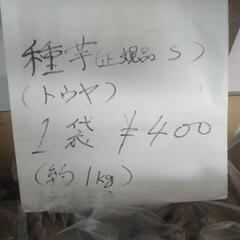 種芋(正規品 S)
(トウヤ)
1袋 ¥400
(約1kg)